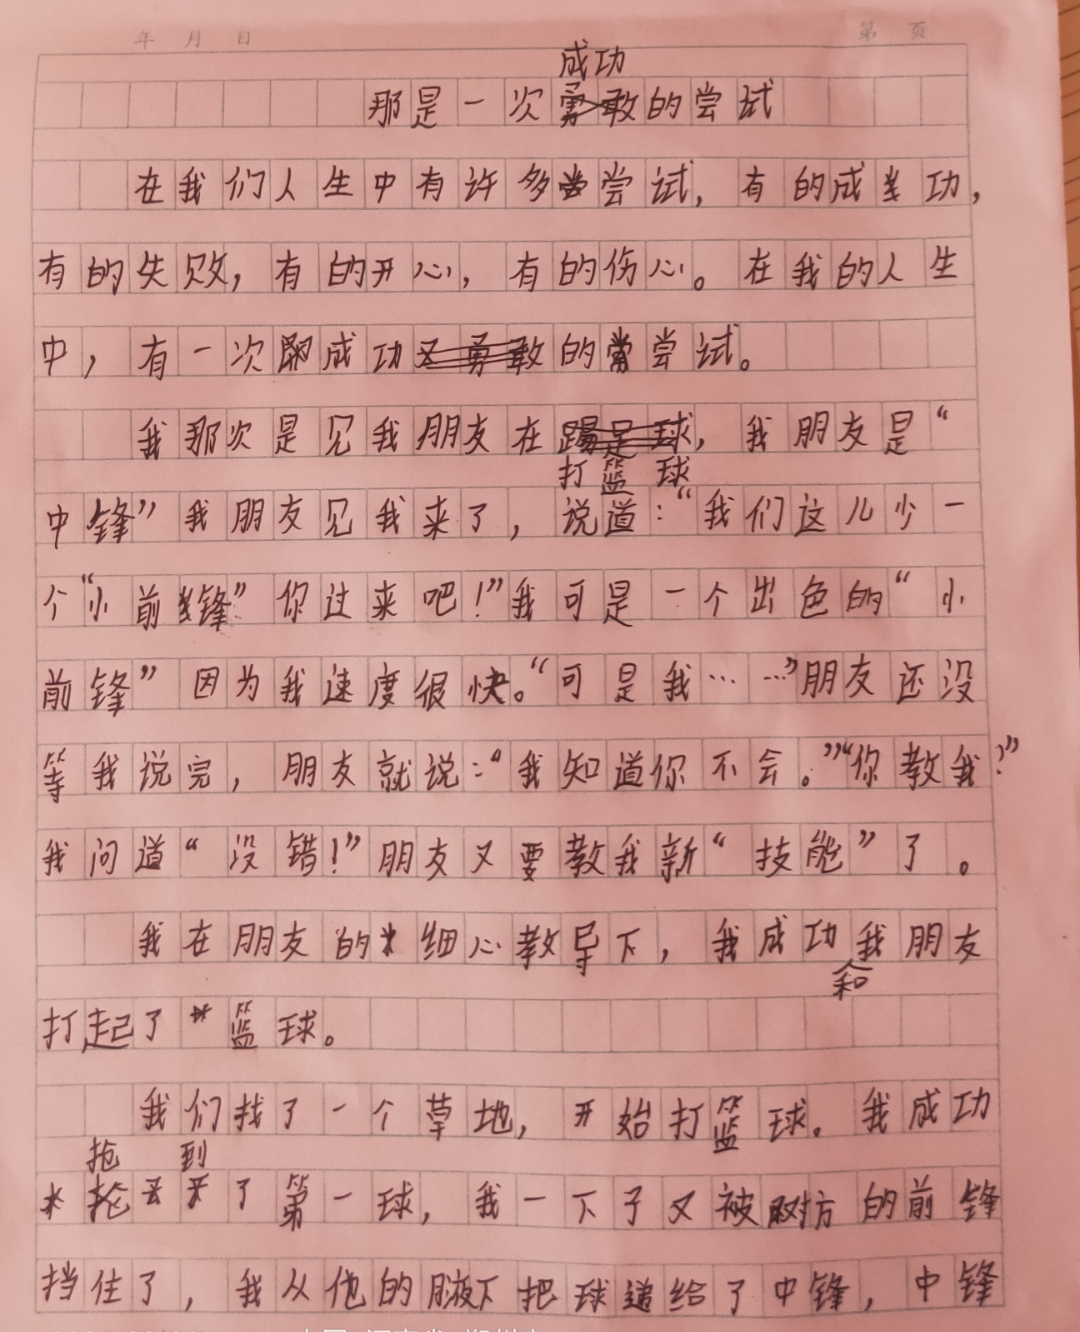 年 月 日 第 页
成功
那是一次的尝试
在我们人生中有许多尝试，有的成功，
有的失败，有的开心，有的伤心。在我的人生
中，有一次成功的尝试。
我那次是见我朋友在，我朋友是“
打篮球
中锋”我朋友见我来了，说道：“我们这儿少一
个“小前锋”你过来吧！”我可是一个出色的“小
前锋”因为我速度很快。“可是我……”朋友还没
等我说完，朋友就说：“我知道你不会。”“你教我？”
我问道“没错！”朋友又要教我新“技能”了。
我在朋友的细心教导下，我成功我朋友
和
打起了篮球。
我们找了一个草地，开始打篮球。我成功
抢 到
了第一球，我一下子又被对方的前锋
挡住了，我从他的腋下把球递给了中锋，中锋